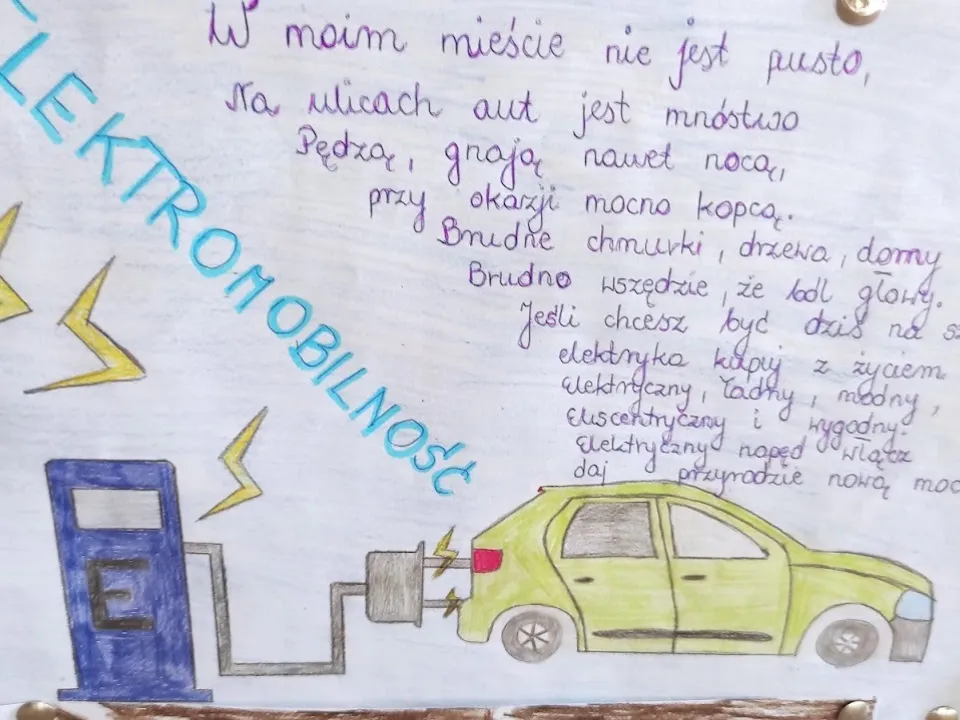 ELEKTROMOBILNOŚĆ
W moim mieście nie jest pusto,
Na ulicach aut jest mnóstwo
Pędzą, gnają nawet nocą,
przy okazji mocno kopcą.
Brudne chmurki, drzewa, domy
Brudno wszędzie, że ból głowy.
Jeśli chcesz być dziś na
elektryka kupuj z życiem
elektryczny, ładny, modny,
ekscentryczny i wygodny.
elektryczny napęd włącz
daj przyrodzie nową moc
E